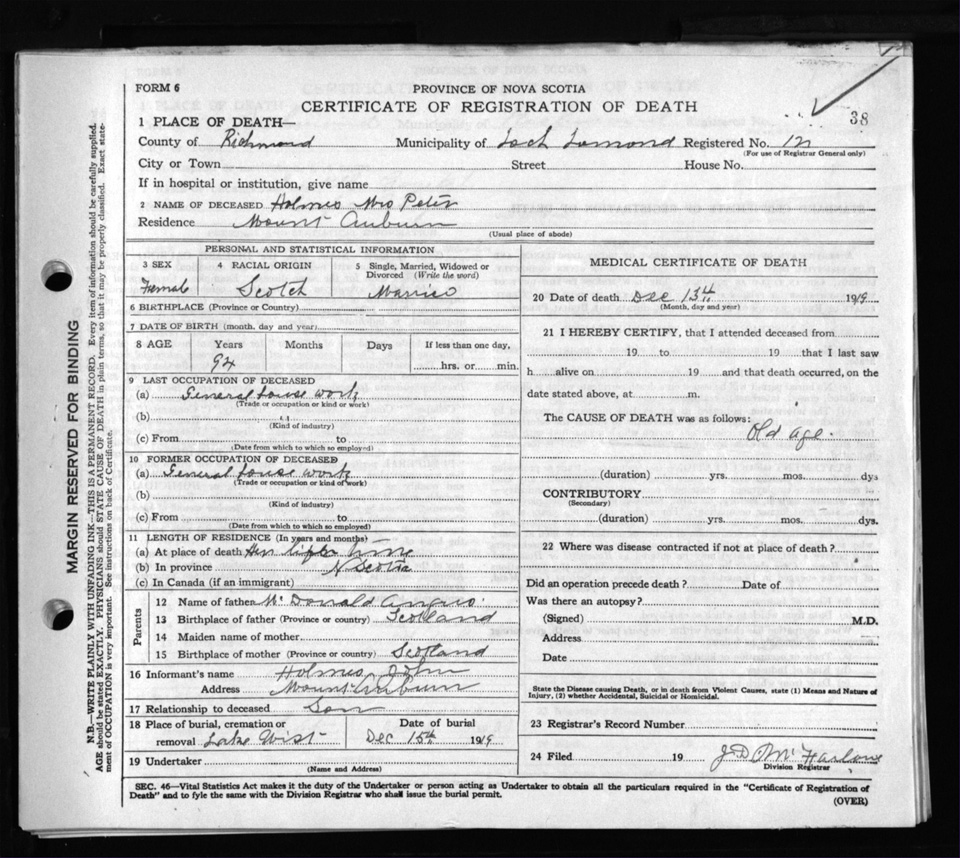 FORM 6
PROVINCE OF NOVA SCOTIA
CERTIFICATE OF REGISTRATION OF DEATH
38
1 PLACE OF DEATH—
County of Richmond Municipality of Loch Lomond Registered No. 12
(For use of Registrar General only)
City or Town Street House No.
If in hospital or institution, give name
2 NAME OF DECEASED Holmes Mrs Peter
Residence Mount Auburn
(Usual place of abode)
PERSONAL AND STATISTICAL INFORMATION
3 SEX 4 RACIAL ORIGIN 5 Single, Married, Widowed or Divorced (Write the word)
Female Scotch Married
6 BIRTHPLACE (Province or Country)
7 DATE OF BIRTH (month, day and year)
8 AGE Years Months Days If less than one day,
92 hrs. or min.
9 LAST OCCUPATION OF DECEASED
(a) General house work
(Trade or occupation or kind or work)
(b)
(Kind of industry)
(c) From to
(Date from which to which so employed)
10 FORMER OCCUPATION OF DECEASED
(a) General house work
(Trade or occupation or kind of work)
(b)
(Kind of industry)
(c) From to
(Date from which to which so employed)
11 LENGTH OF RESIDENCE (In years and months)
(a) At place of death Her life time
(b) In province N Scotia
(c) In Canada (if an immigrant)
Parents
12 Name of father McDonald Angus
13 Birthplace of father (Province or country) Scotland
14 Maiden name of mother
15 Birthplace of mother (Province or country) Scotland
16 Informant's name Holmes John
Address Mount Auburn
17 Relationship to deceased Son
18 Place of burial, cremation or removal Lake Uist Date of burial Dec 15th 1919
19 Undertaker
(Name and Address)
MEDICAL CERTIFICATE OF DEATH
20 Date of death Dec 13th 1919
(Month, day and year)
21 I HEREBY CERTIFY, that I attended deceased from
19 to 19 that I last saw
h alive on 19 and that death occurred, on the
date stated above, at m.
The CAUSE OF DEATH was as follows:
Old age.
(duration) yrs. mos. dys
CONTRIBUTORY
(Secondary)
(duration) yrs. mos. dys.
22 Where was disease contracted if not at place of death?
Did an operation precede death? Date of
Was there an autopsy?
(Signed) M.D.
Address
Date
State the Disease causing Death, or in death from Violent Causes, state (1) Means and Nature of
Injury, (2) whether Accidental, Suicidal or Homicidal.
23 Registrar's Record Number
24 Filed 19 McFarlane
Division Registrar
SEC. 46—Vital Statistics Act makes it the duty of the Undertaker or person acting as Undertaker to obtain all the particulars required in the "Certificate of Registration of
Death" and to fyle the same with the Division Registrar who shall issue the burial permit.
(OVER)
MARGIN RESERVED FOR BINDING
N.B.—WRITE PLAINLY WITH UNFADING INK—THIS IS A PERMANENT RECORD. Every item of information should be carefully supplied.
AGE should be stated EXACTLY. PHYSICIANS should STATE CAUSE OF DEATH in plain terms, so that it may be properly classified. Exact state-
ment of OCCUPATION is very important. See instructions on back of Certificate.